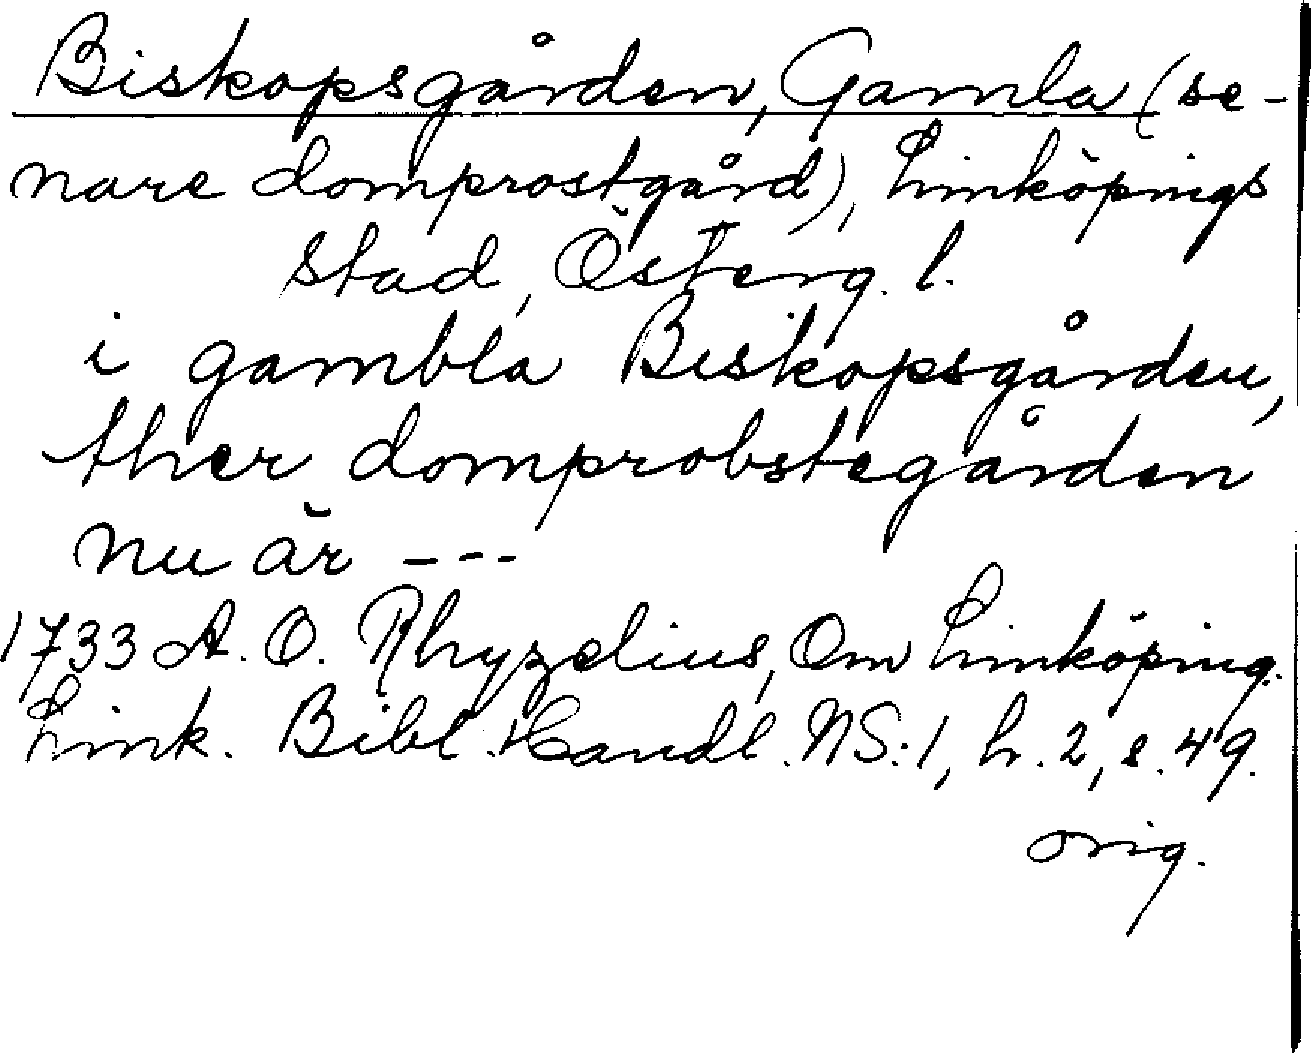 Biskopsgården, Gamla (se-
nare domprostgård), Linköpings
stad, Österg. l.
i gambla Biskopsgården,
ther domprobstegården
nu är ---
1733 A. O. Rhyzelius, Om Linköping.
Link. Bibl. Handl. NS:1, h. 2, s. 49.
orig.